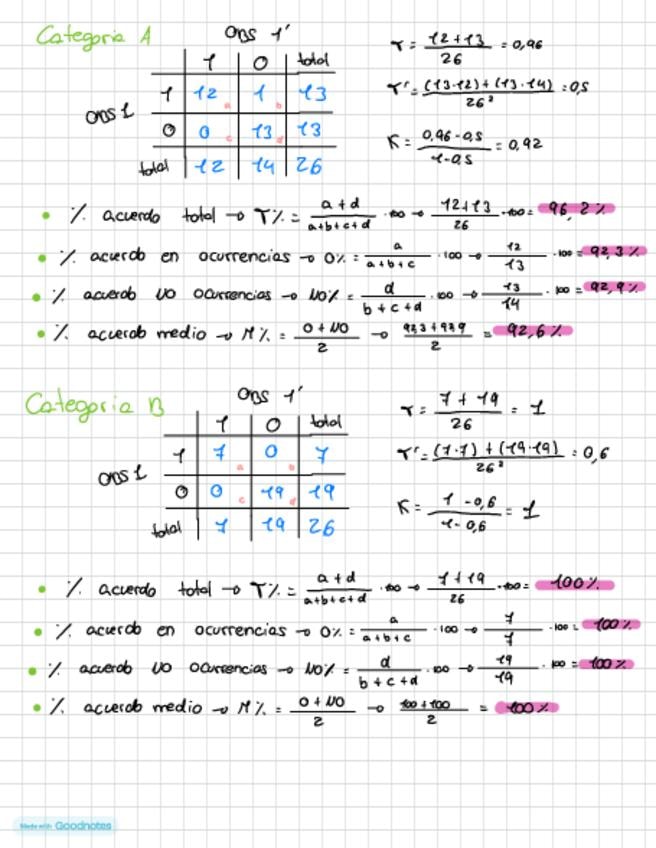 Categoria A
Obs 1'
1 0 total
Obs 1
1 12 a 1 b 13
0 0 c 13 d 13
total 12 14 26
T = 12+13 / 26 = 0,96
T' = (13·12)+(13·14) / 26² = 0,5
K = 0,96-0,5 / 1-0,5 = 0,92
• % acuerdo total → T% = a+d / a+b+c+d · 100 → 12+13 / 26 · 100 = 96,2%
• % acuerdo en ocurrencias → O% = a / a+b+c · 100 → 12 / 13 · 100 = 92,3%
• % acuerdo NO ocurrencias → NO% = d / b+c+d · 100 → 13 / 14 · 100 = 92,9%
• % acuerdo medio → M% = O+NO / 2 → 92,3+92,9 / 2 = 92,6%
Categoria B
Obs 1'
1 0 total
Obs 1
1 7 a 0 b 7
0 0 c 19 d 19
total 7 19 26
T = 7+19 / 26 = 1
T' = (7·7)+(19·19) / 26² = 0,6
K = 1-0,6 / 1-0,6 = 1
• % acuerdo total → T% = a+d / a+b+c+d · 100 → 7+19 / 26 · 100 = 100%
• % acuerdo en ocurrencias → O% = a / a+b+c · 100 → 7 / 7 · 100 = 100%
• % acuerdo NO ocurrencias → NO% = d / b+c+d · 100 → 19 / 19 · 100 = 100%
• % acuerdo medio → M% = O+NO / 2 → 100+100 / 2 = 100%
Made with Goodnotes